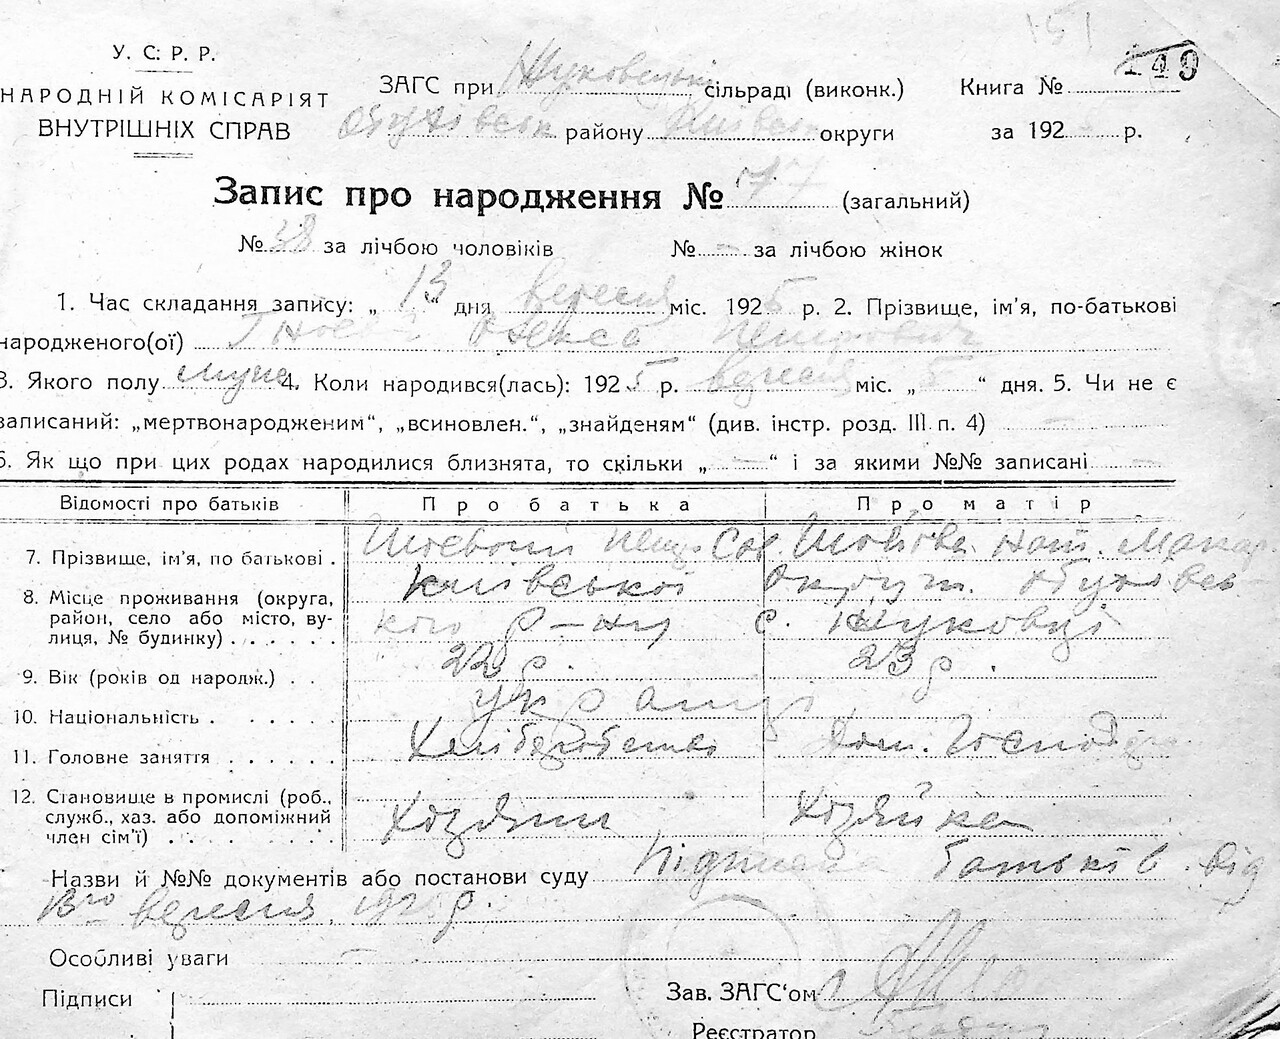 151
149
У. С. Р. Р.
НАРОДНІЙ КОМІСАРІЯТ
ВНУТРІШНІХ СПРАВ
ЗАГС при Жуковецькій сільраді (виконк.) Книга №
Обухівськ району Київськ округи за 192 р.
Запис про народження № 77 (загальний)
№ 38 за лічбою чоловіків № - за лічбою жінок
1. Час складання запису: „ 13 “ дня вересня міс. 1925 р. 2. Прізвище, ім'я, по-батькові
народженого(ої) Олекса Петрович
3. Якого полу муж. 4. Коли народився(лась): 1925 р. вересня міс. „ 5 “ дня. 5. Чи не є
записаний: „мертвонародженим“, „всиновлен.“, „знайденям“ (див. інстр. розд. III п. 4) —
6. Як що при цих родах народилися близнята, то скільки „ — “ і за якими №№ записані —
Відомості про батьків Про батька Про матір
7. Прізвище, ім'я, по батькові . Нат. Макар.
8. Місце проживання (округа, Київської округи Обухівсь-
район, село або місто, ву- кого р-ну с. Жуковці
лиця, № будинку) . . . . .
9. Вік (років од народж.) . . 22 р. 23 р.
10. Національність . . . . . . укр аїнці
11. Головне заняття . . . . . . Хліборобство Дом. Господар
12. Становище в промислі (роб., Хозяин Хозяйка
служб., хаз. або допоміжний
член сім'ї) . . . . . . . .
Назви й №№ документів або постанови суду батьків від
13го вересня 1925 р.
Особливі уваги —
Підписи
Зав. ЗАГС'ом
Реєстратор